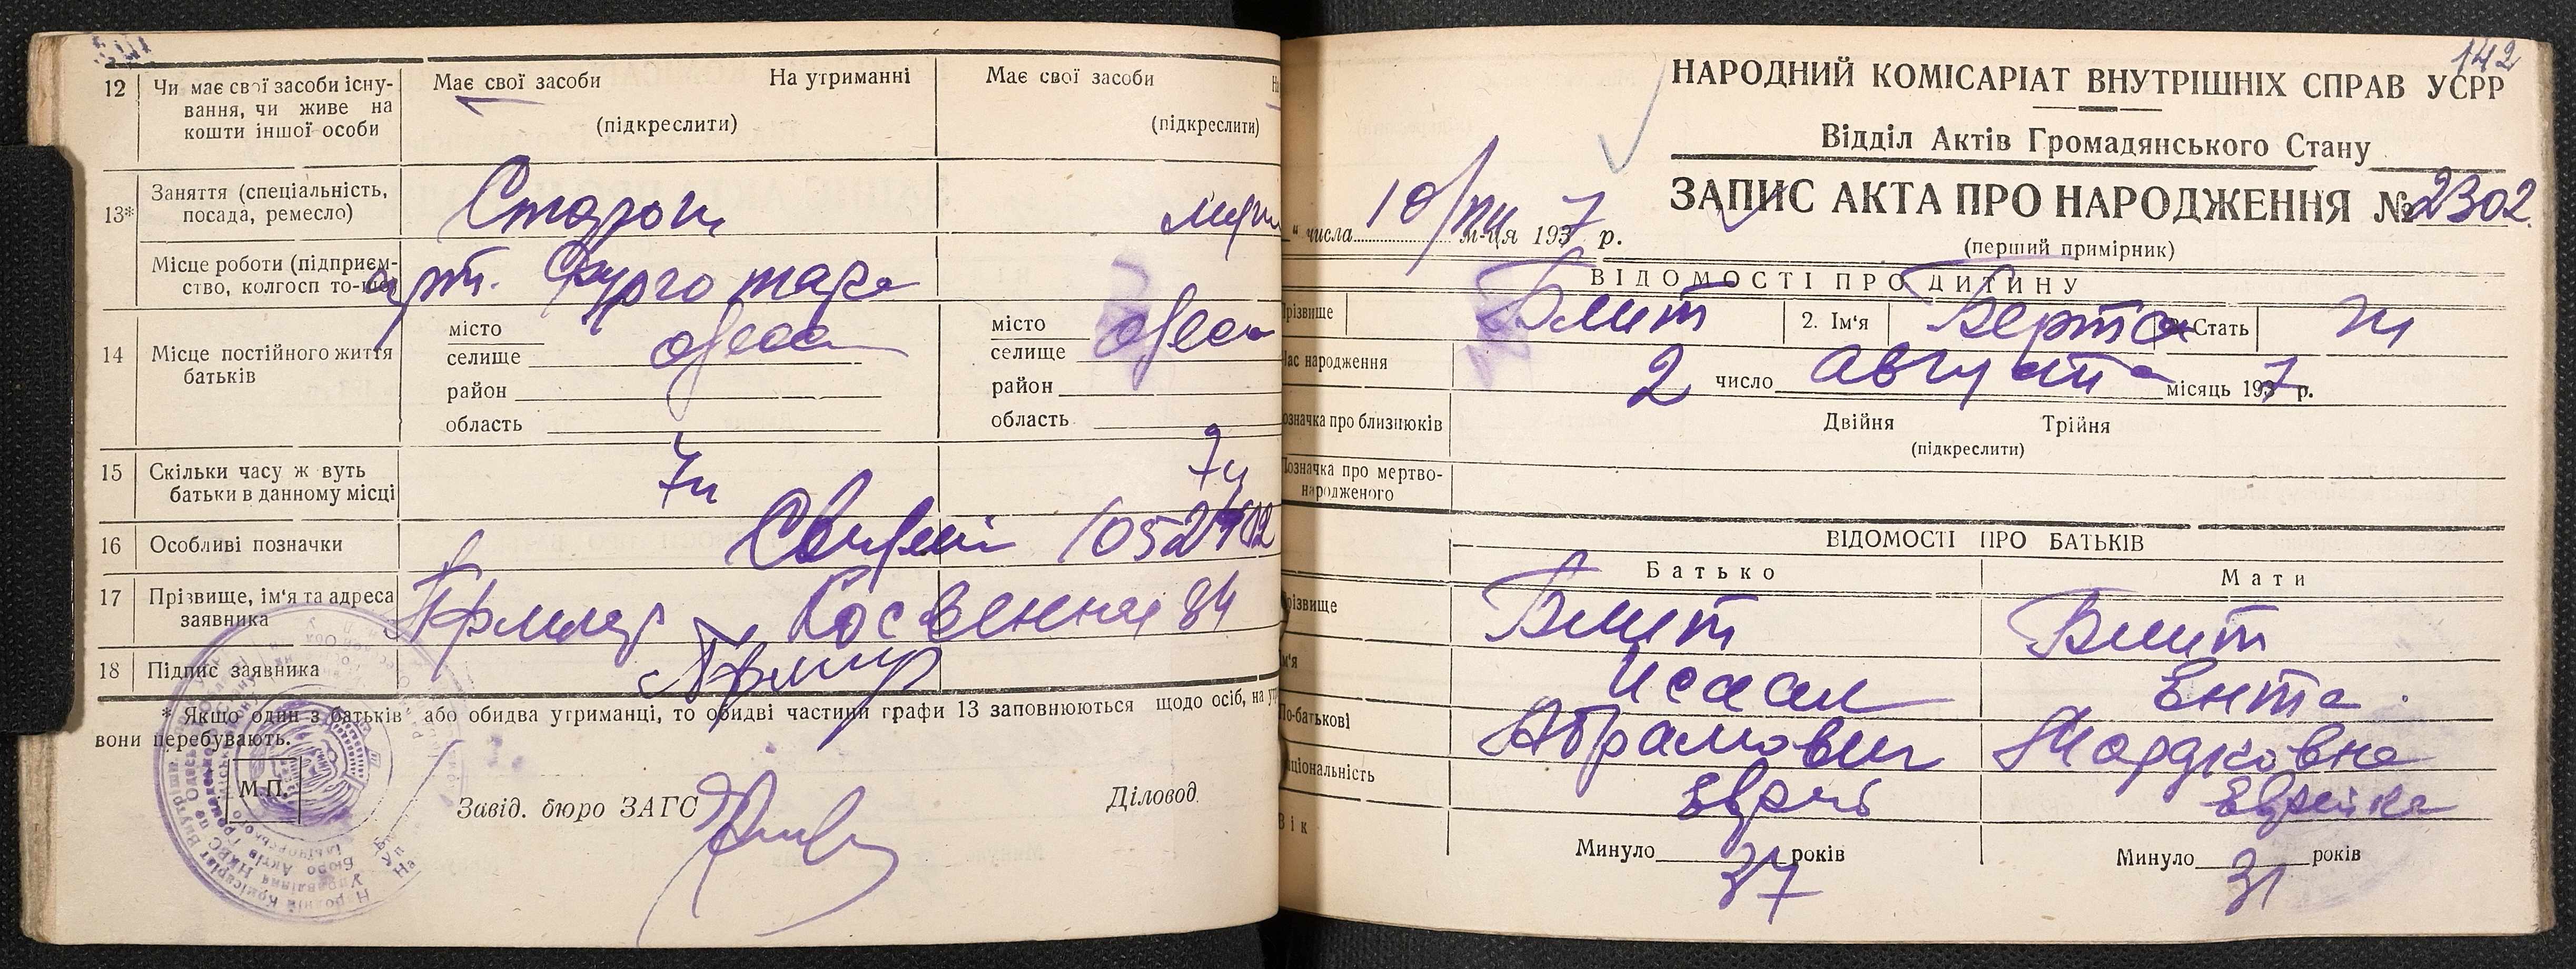 12 Чи має свої засоби існу-
вання, чи живе на
кошти іншої особи
Має свої засоби На утриманні
(підкреслити)
Має свої засоби
(підкреслити)
13* Заняття (спеціальність,
посада, ремесло)
Місце роботи (підприєм-
ство, колгосп то-що)
арт.
14 Місце постійного життя
батьків
місто
селище Одеса
район
область
місто
селище Одеса
район
область
15 Скільки часу ж вуть
батьки в данному місці
16 Особливі позначки
17 Прізвище, ім'я та адреса
заявника
Косвенная 84
18 Підпис заявника
* Якщо один з батьків або обидва утриманці, то обидві частини графи 13 заповнюються щодо осіб, на
вони перебувають.
М.П.
Завід. бюро ЗАГС
Діловод
142
НАРОДНИЙ КОМІСАРІАТ ВНУТРІШНІХ СПРАВ УСРР
Відділ Актів Громадянського Стану
ЗАПИС АКТА ПРО НАРОДЖЕННЯ № 2302
(перший примірник)
" числа 10/VIII м-ця 1937 р.
ВІДОМОСТІ ПРО ДИТИНУ
різвище Блит 2. Ім'я Берта Стать ж
ас народження 2 число августа місяць 1937 р.
означка про близнюків
Двійня Трійня
(підкреслити)
означка про мертво-
народженого
ВІДОМОСТІ ПРО БАТЬКІВ
Батько Мати
різвище Блит Блит
м'я Исаак Ента
По-батькові Абрамович Мордковна
аціональність Еврей Еврейка
Вік
Минуло 37 років
Минуло 31 років